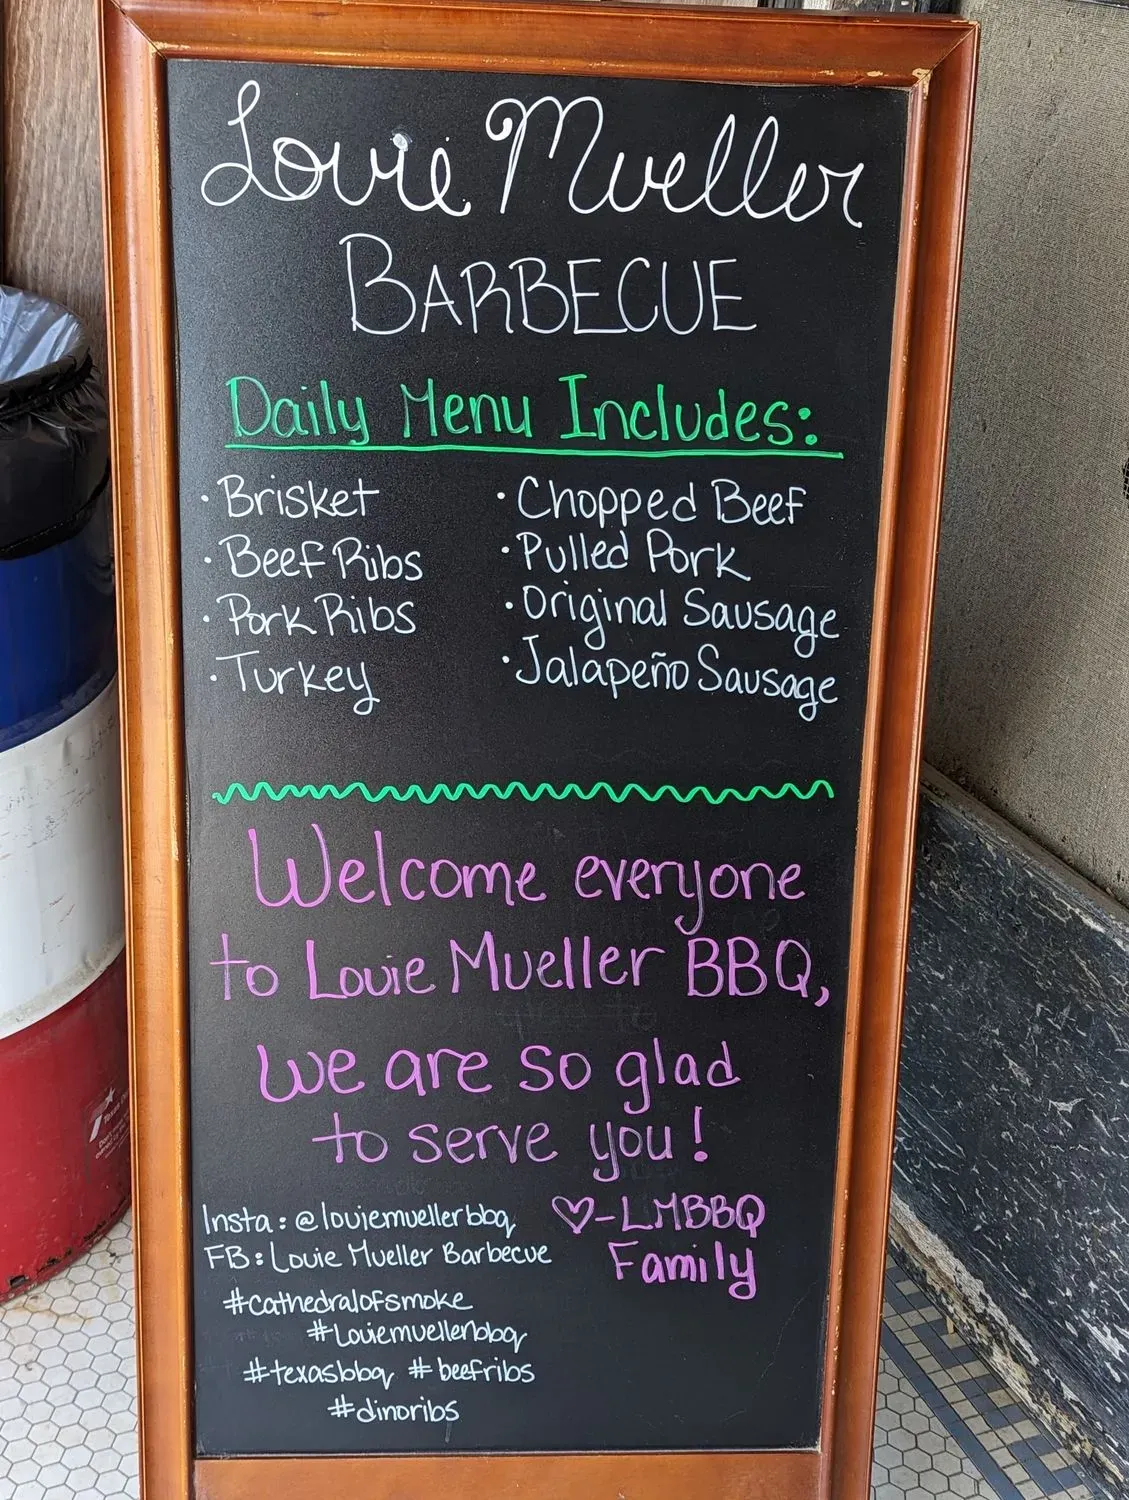 Louie Mueller
BARBECUE
Daily Menu Includes:
· Brisket
· Beef Ribs
· Pork Ribs
· Turkey
· Chopped Beef
· Pulled Pork
· Original Sausage
· Jalapeño Sausage
Welcome everyone
to Louie Mueller BBQ,
we are so glad
to serve you!
♡-LMBBQ
Family
Insta: @louiemuellerbbq
FB: Louie Mueller Barbecue
#cathedralofsmoke
#Louiemuellerbbq
#texasbbq #beefribs
#dinoribs